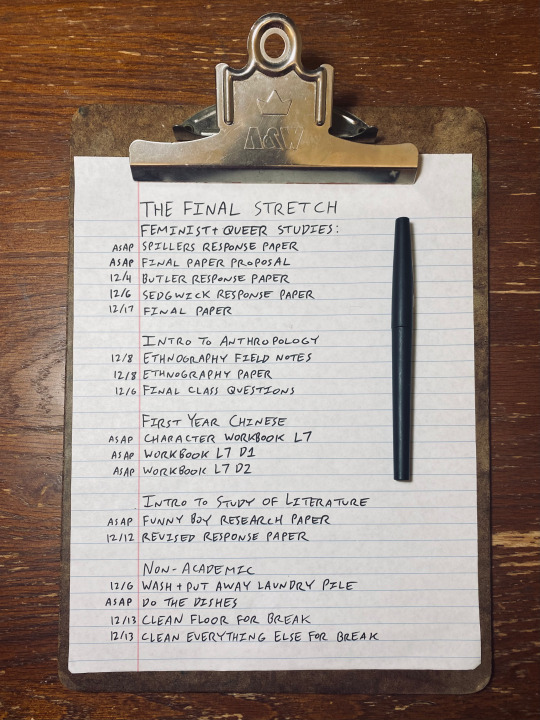 A&W
THE FINAL STRETCH
FEMINIST + QUEER STUDIES:
ASAP SPILLERS RESPONSE PAPER
ASAP FINAL PAPER PROPOSAL
12/4 BUTLER RESPONSE PAPER
12/6 SEDGWICK RESPONSE PAPER
12/17 FINAL PAPER
INTRO TO ANTHROPOLOGY
12/8 ETHNOGRAPHY FIELD NOTES
12/8 ETHNOGRAPHY PAPER
12/6 FINAL CLASS QUESTIONS
FIRST YEAR CHINESE
ASAP CHARACTER WORKBOOK L7
ASAP WORKBOOK L7 D1
ASAP WORKBOOK L7 D2
INTRO TO STUDY OF LITERATURE
ASAP FUNNY BOY RESEARCH PAPER
12/12 REVISED RESPONSE PAPER
NON-ACADEMIC
12/6 WASH + PUT AWAY LAUNDRY PILE
ASAP DO THE DISHES
12/13 CLEAN FLOOR FOR BREAK
12/13 CLEAN EVERYTHING ELSE FOR BREAK